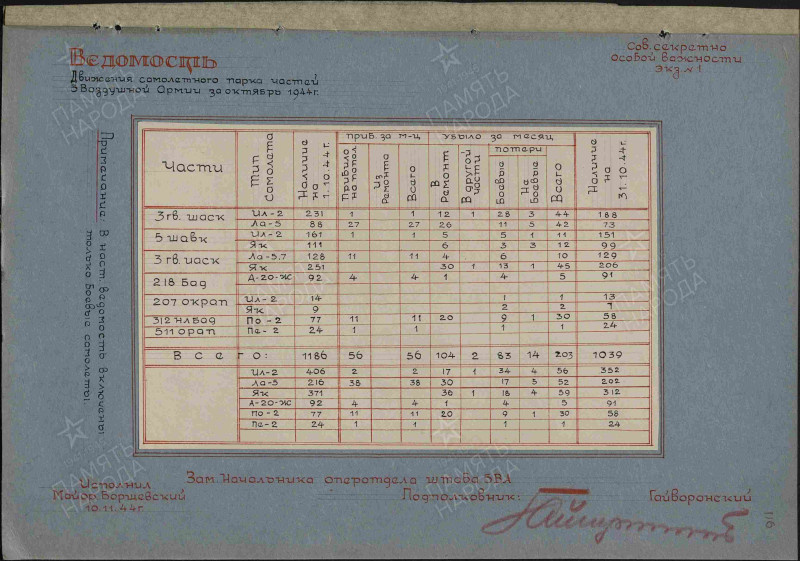 Ведомость
Движения самолетного парка частей
3 Воздушной Армии за октябрь 1944 г.
Сов. секретно
Особой важности
Экз № 1
Примечание: В наст ведомость включены
только боевые самолеты.
Части Тип самолета Наличие на 1.10.44 г. приб. за м-ц убыло за месяц Наличие на 31.10.44 г.
Прибыло на попол. Из ремонта Всего В ремонт В другой части потери Всего
Боевые Не боевые
3 гв. шаск Ил-2 231 1 1 12 1 28 3 44 188
Ла-5 88 27 27 26 11 5 42 73
5 шавк Ил-2 161 1 1 5 5 1 11 151
Як 111 6 3 3 12 99
3 гв. иаск Ла-5.7 128 11 11 4 6 10 129
Як 251 30 1 13 1 45 206
218 бад А-20-Ж 92 4 4 1 4 5 91
207 окрап Ил-2 14 1 1 13
Як 9 2 2 7
312 нлбад По-2 77 11 11 20 9 1 30 58
511 орап Пе-2 24 1 1 1 1 24
Всего: 1186 56 56 104 2 83 14 203 1039
Ил-2 406 2 2 17 1 34 4 56 352
Ла-5 216 38 38 30 17 5 52 202
Як 371 36 1 18 4 59 312
А-20-Ж 92 4 4 1 4 5 91
По-2 77 11 11 20 9 1 30 58
Пе-2 24 1 1 1 1 24
Зам. Начальника оперотдела штаба 3 ВА
Подполковник: Гайворонский
Исполнил
Майор Борщевский
10.11.44 г.
ПАМЯТЬ НАРОДА